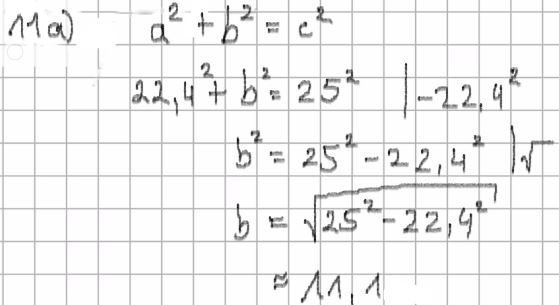 11a) a² + b² = c²
22,4² + b² = 25² |-22,4²
b² = 25² - 22,4² |√
b = √25² - 22,4²
≈ 11,1